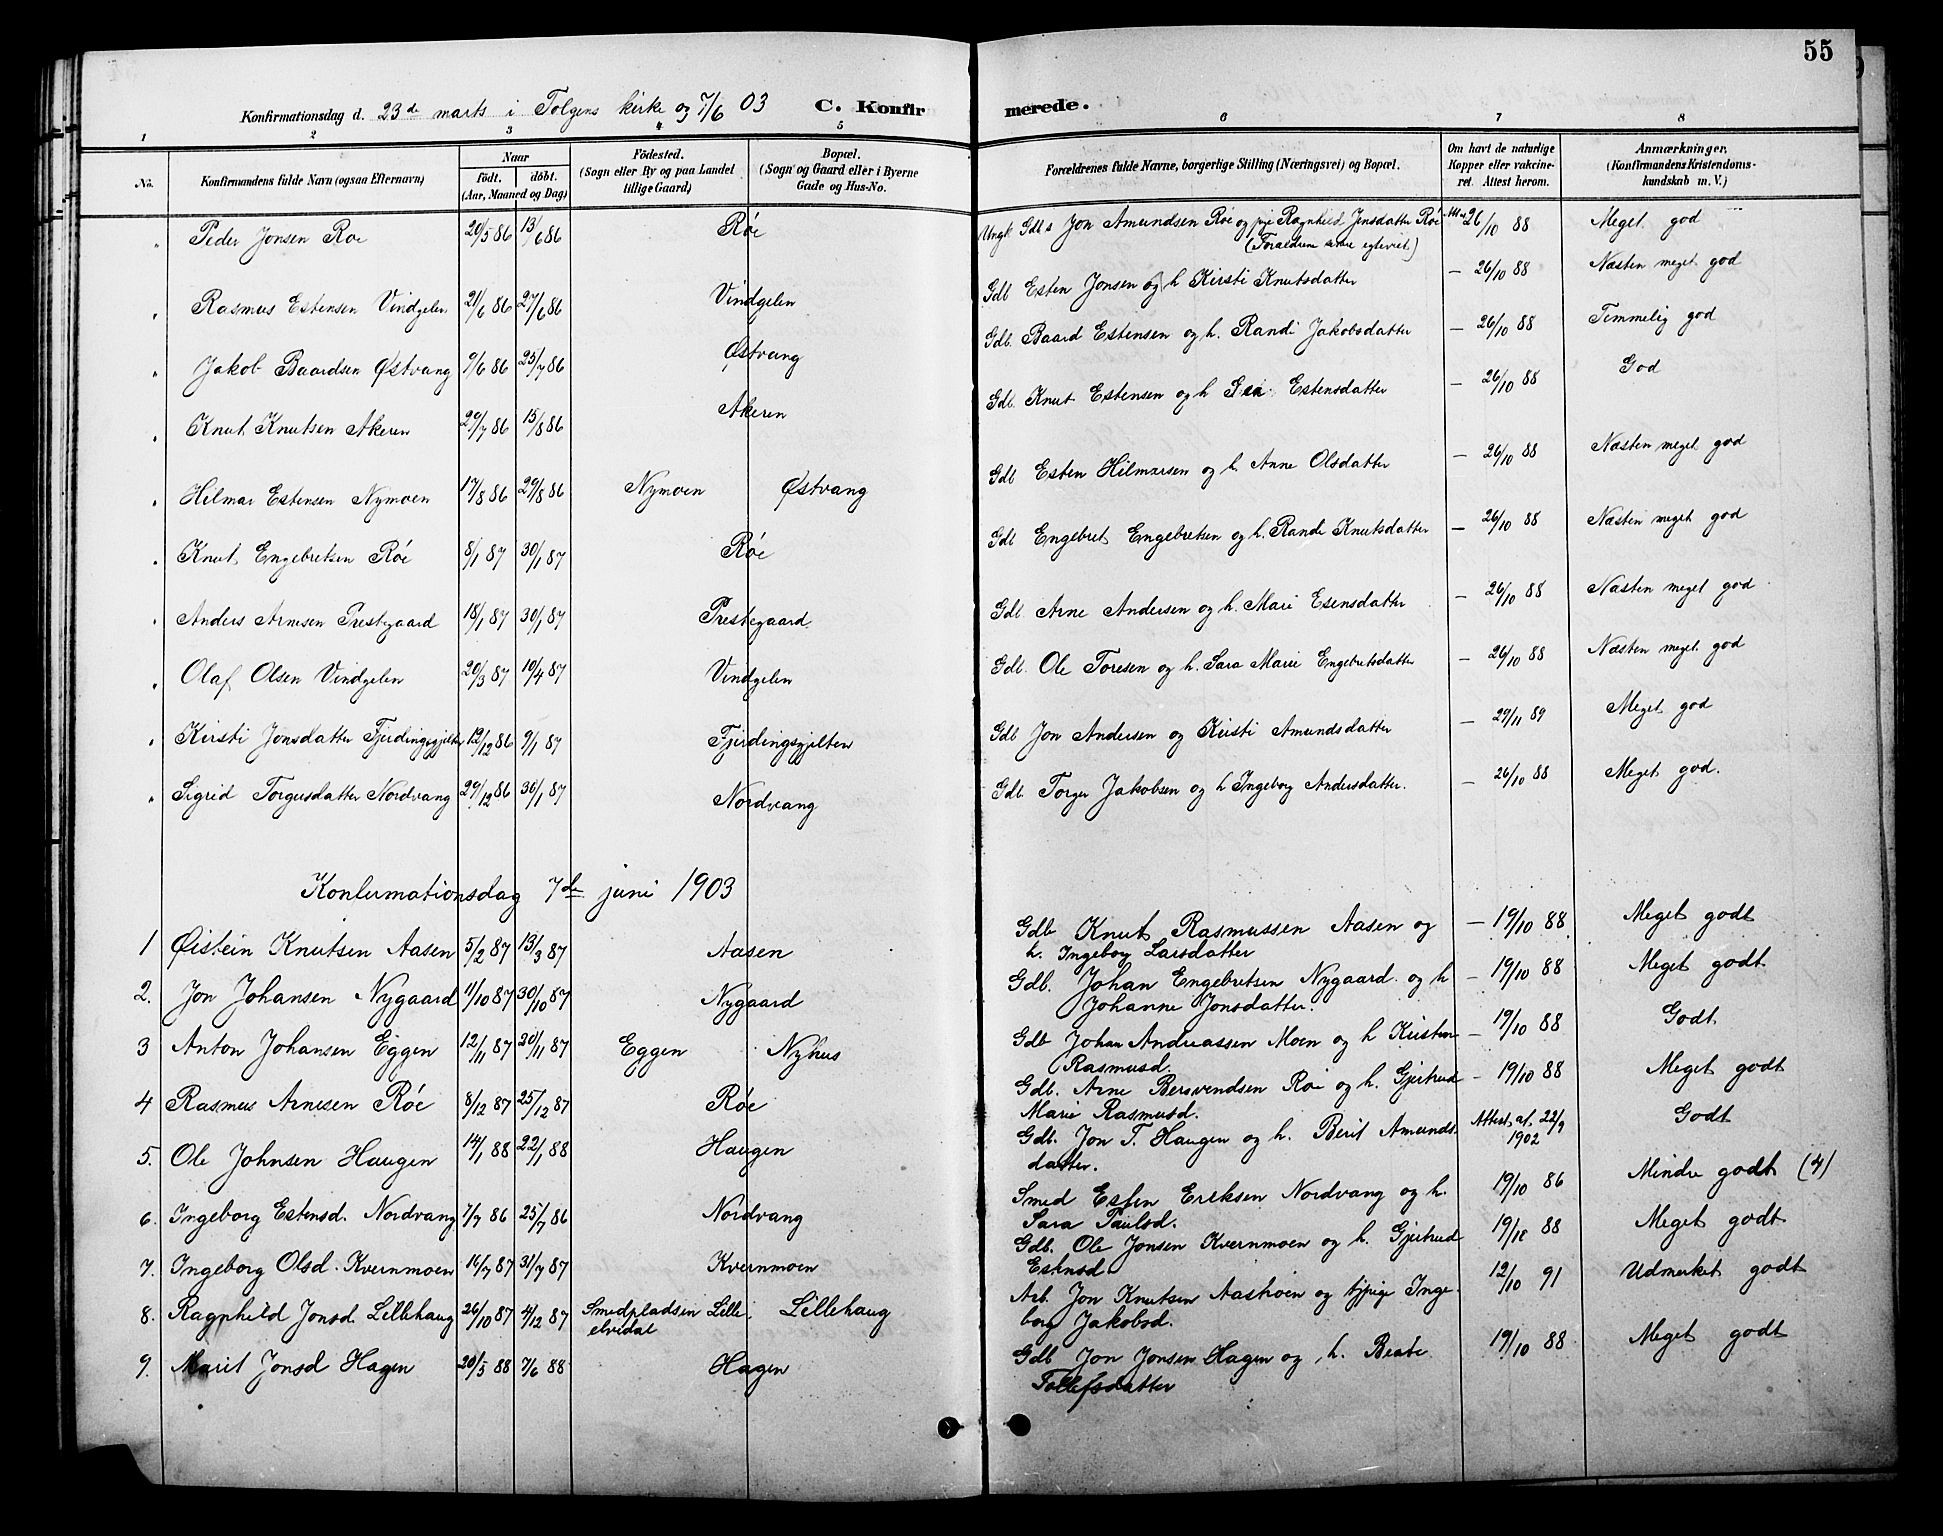 55
Konfirmationsdag d. 23de marts i Tolgens kirke og 7/6 03 C. Konfirmerede.
1 2 3 4 5 6 7 8
No. Konfirmandens fulde Navn (ogsaa Efternavn) Naar födt. döbt. (Aar, Maaned og Dag) Födested. (Sogn eller By og paa Landet tillige Gaard) Bopæl. (Sogn og Gaard eller i Byerne Gade og Hus-No. Forældrenes fulde Navne, borgerlige Stilling (Næringsvei) og Bopæl. Om havt de naturlige Kopper eller vakcineret. Attest herom. Anmærkninger, (Konfirmandens Kristendomskundskab m. V.)
" Peder Jonsen Røe 20/5 86 13/6 86 Røe Ungk. Gdbs Jon Amundsen Røe og pige Ragnhild Jensdatter Røe 26/10 88 Meget god
(Foraldrene senere egteviet)
" Rasmus Estensen Vindgelen 21/6 86 27/6 86 Vindgelen Gdb Esten Jonsen og h Kirsti Knutsdatter – 26/10 88 Næsten meget god
" Jakob Baardsen Østvang 9/6 86 25/7 86 Østvang Gdb. Baard Estensen og h. Randi Jakobsdatter – 26/10 88 Temmelig god
" Knut Knutsen Akeren 29/7 86 15/8 86 Akeren Gdb. Knut Estensen og h Estensdatter – 26/10 88 God
" Hilmar Estensen Nymoen 17/8 86 29/8 86 Nymoen Østvang Gdb Esten Hilmarsen og h. Anne Olsdatter – 26/10 88 Næsten meget god
" Knut Engebretsen Røe 8/1 87 30/1 87 Røe Gdb Engebret Engebretsen og h. Randi Knutsdatter – 26/10 88 Næsten meget god
" Anders Arnesen Prestegaard 18/1 87 30/1 87 Prestegaard Gdb. Arne Andersen og h. Mari Esensdatter – 26/10 88 Næsten meget god
" Olaf Olsen Vindgelen 20/3 87 10/4 87 Vindgelen Gdb. Ole Toresen og h. Sara Marie Engebretsdatter – 26/10 88 Næsten meget god
" Kirsti Jonsdatter Fjerdingsgjelten 12/12 86 9/1 87 Fjerdingsgjelten Gdb Jon Andersen og Kirsti Amundsdatter – 29/11 89 Meget god
" Sigrid Torgersdatter Nordvang 29/12 86 30/1 87 Nordvang Gdb. Torger Jakobsen og h Ingeborg Andersdatter. – 26/10 88 Meget god.
Konfirmationsdag 7de juni 1903
1 Øistein Knutsen Aasen 5/2 87 13/3 87 Aasen Gdb Knut Rasmussen Aasen og – 19/10 88 Meget godt
h. Ingeborg Larsdatter
2. Jon Johansen Nygaard 1/10 87 30/10 87 Nygaard Gdb. Johan Engebretsen Nygaard og h – 19/10 88 Meget godt
Johanne Jonsdatter.
3 Anton Johansen Eggen 12/11 87 20/11 87 Eggen Nyhus Gdb Johan Andreassen Moen og h Kirsten – 19/10 88 Godt
Rasmusd.
4 Rasmus Arnesen Røe 8/12 87 25/12 87 Røe Gdb. Arne Bersvendsen Røe og h. Gjertrud – 19/10 88 Meget godt
Marie Rasmusd.
5. Ole Johnsen Haugen 14/1 88 22/1 88 Haugen Gdb. Jon T. Haugen og h. Berit Amunds Attest af 22/9 1902 Godt
datter.
6. Ingeborg Estensd. Nordvang 7/7 86 25/7 86 Nordvang Smed Esten Eriksen Nordvang og h. 19/10 86 Mindre godt (4)
Sara Paulsd.
7. Ingeborg Olsd. Kvernmoen 16/7 87 31/7 87 Kvernmoen Gdb. Ole Jonsen Kvernmoen og h. Gjertrud 19/10 88 Meget godt
Estensd.
8. Ragnhild Jonsd. Lillehaug 26/10 87 4/12 87 Smedpladsen Lilleelvedal Lillehaug Arb. Jon Knutsen Aashoen og pige Inge 12/10 91 Udmerket godt
borg Jakobsd.
9. Marit Jonsd Hagen 20/5 88 7/6 88 Hagen Gdb Jon Jonsen Hagen og h. Beate 19/10 88 Meget godt
Tollefsdatter